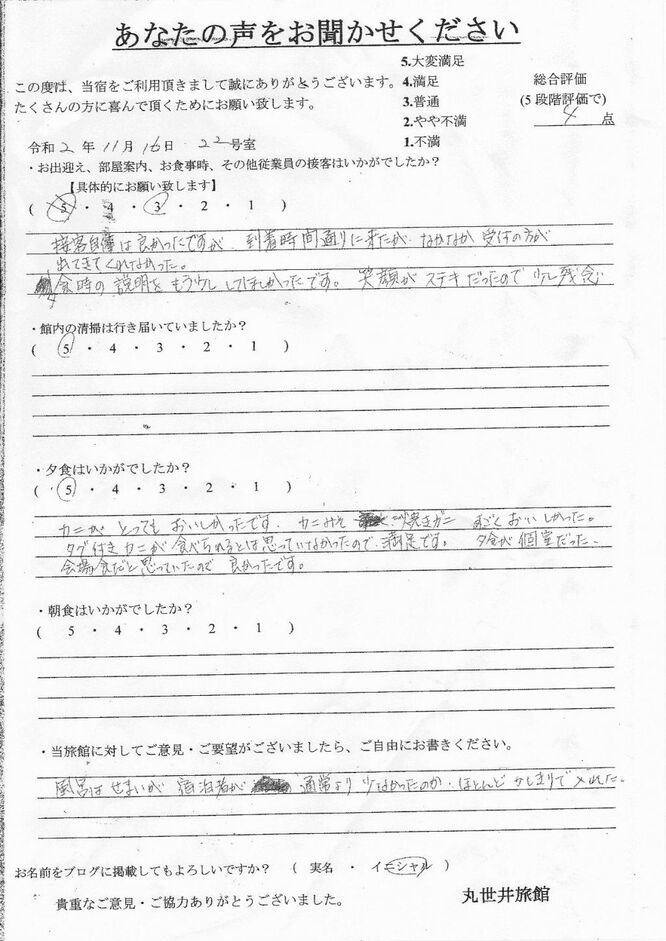 あなたの声をお聞かせください
5.大変満足
この度は、当宿をご利用頂きまして誠にありがとうございます。 4.満足 総合評価
たくさんの方に喜んで頂くためにお願い致します。 3.普通 (5段階評価で)
2.やや不満 4 点
令和 2 年 11月 16日 22号室 1.不満
・お出迎え、部屋案内、お食事時、その他従業員の接客はいかがでしたか?
【具体的にお願い致します】
( 5 ・ 4 ・ 3 ・ 2 ・ 1 )
接客自体は良かったですが、到着時間通りに来たが、なかなか受付の方が
出てきてくれなかった。
食時の説明をもう少ししてほしかったです。 笑顔がステキだったので少し残念
・館内の清掃は行き届いていましたか?
( 5 ・ 4 ・ 3 ・ 2 ・ 1 )
・夕食はいかがでしたか?
( 5 ・ 4 ・ 3 ・ 2 ・ 1 )
カニがとってもおいしかったです。カニみそ 焼きガニ すごくおいしかった。
タグ付きカニが食べられるとは思っていなかったので、満足です。 夕食が個室だった、
会場食だと思っていたので 良かったです。
・朝食はいかがでしたか?
( 5 ・ 4 ・ 3 ・ 2 ・ 1 )
・当旅館に対してご意見・ご要望がございましたら、ご自由にお書きください。
風呂はせまいが 宿泊者が 通常より少なかったのか、ほとんどかしきりで入れた。
お名前をブログに掲載してもよろしいですか? ( 実名 ・ イニシャル )
貴重なご意見・ご協力ありがとうございました。
丸世井旅館